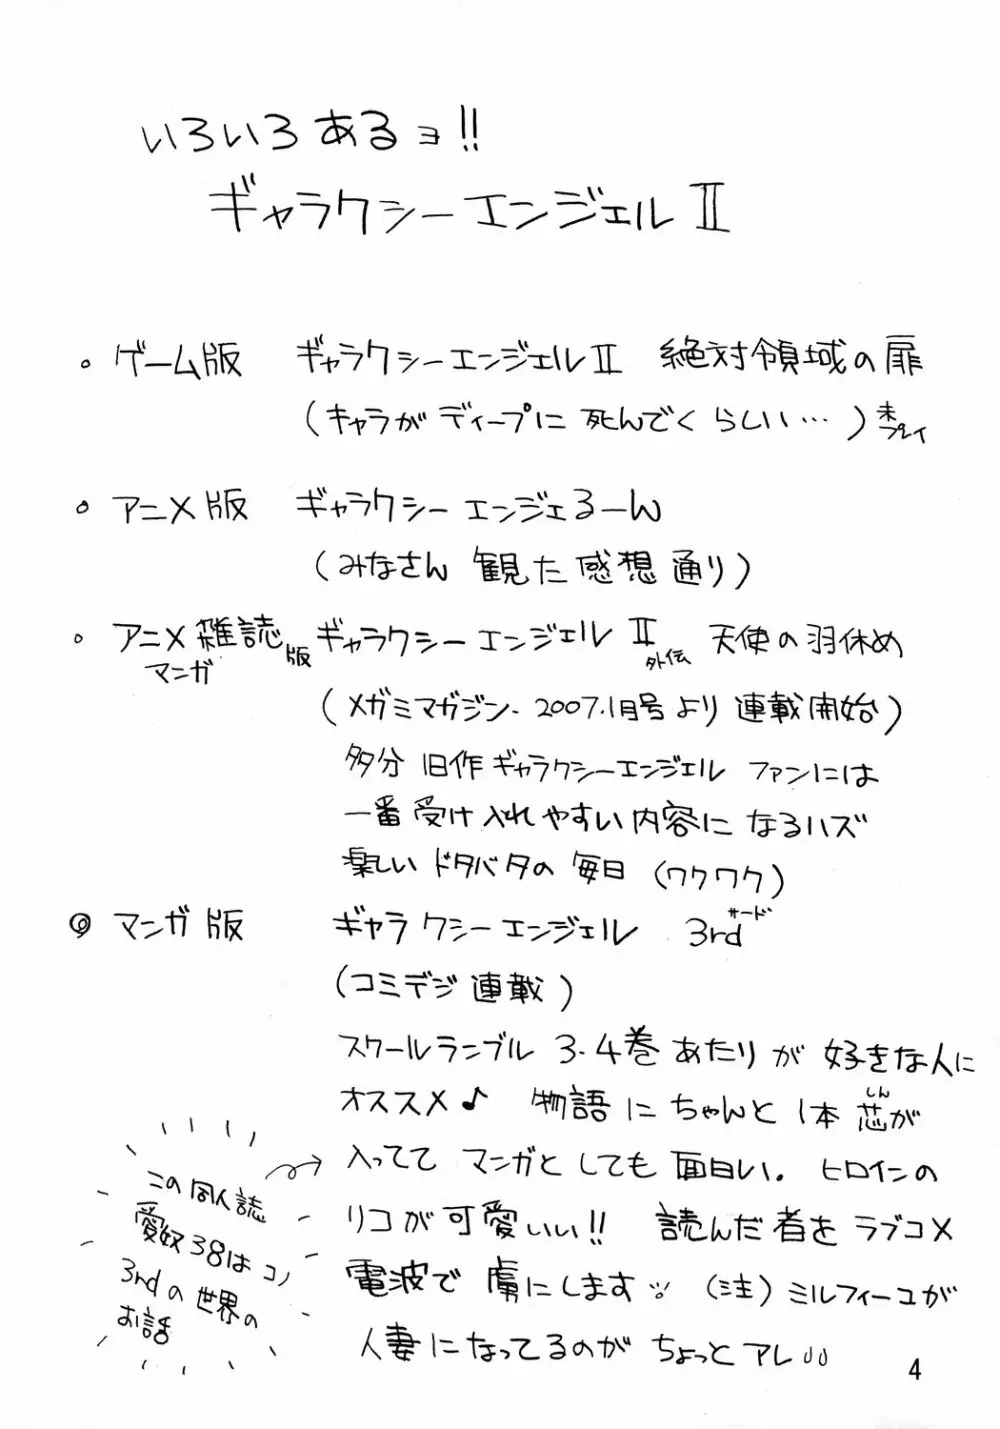 いろいろあるヨ!!
ギャラクシーエンジェルⅡ
。ゲーム版 ギャラクシーエンジェルⅡ 絶対領域の扉
(キャラがディープに死んでくらしい…)未プレイ
。アニメ版 ギャラクシーエンジェるーん
(みなさん観た感想通り)
。アニメ雑誌マンガ版 ギャラクシーエンジェルⅡ外伝 天使の羽休め
(メガミマガジン.2007.1月号より連載開始)
多分旧作ギャラクシーエンジェルファンには
一番受け入れやすい内容になるハズ
楽しいドタバタの毎日(ワクワク)
◎マンガ版 ギャラクシーエンジェル 3rd
サード
(コミデジ連載)
スクールランブル3.4巻あたりが好きな人に
オススメ♪ 物語にちゃんと1本芯が
しん
入ってて マンガとしても面白い. ヒロインの
リコが可愛いい!! 読んだ者をラブコメ
電波で虜にします (注)ミルフィーユが
人妻になってるのがちょっとアレ
この同人誌
愛奴38はコノ
3rdの世界の
お話
4